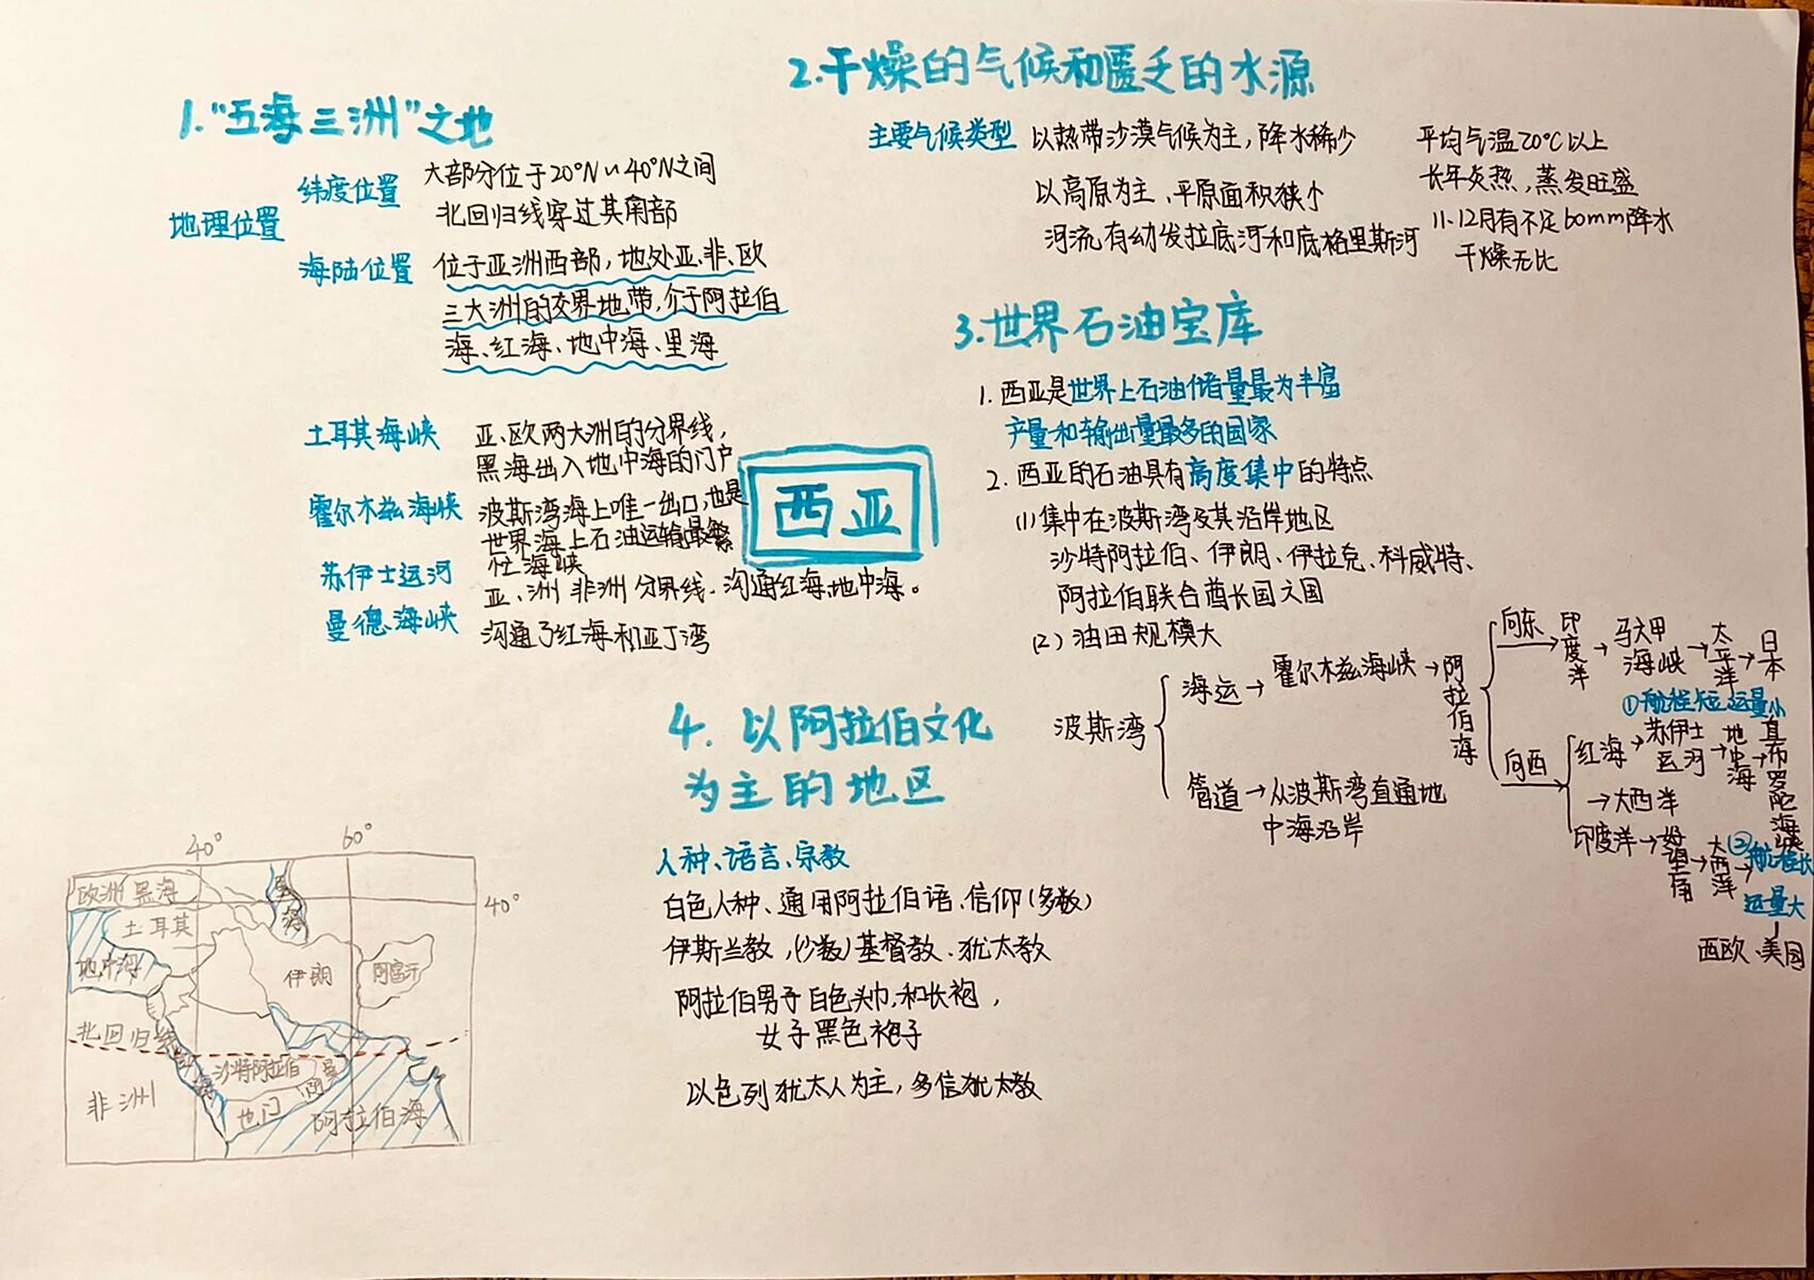 1."五海三洲"之地
地理位置
纬度位置
大部分位于20°N~40°N之间
北回归线穿过其南部
海陆位置
位于亚洲西部,地处亚、非、欧
三大洲的交界地带,介于阿拉伯
海、红海、地中海、里海
土耳其海峡
亚、欧两大洲的分界线,
黑海出入地中海的门户
霍尔木兹海峡
波斯湾海上唯一出口,也是
世界海上石油运输最繁
忙海峡
苏伊士运河
亚、洲 非洲 分界线.沟通红海、地中海。
曼德海峡
沟通了红海和亚丁湾
西亚
2.干燥的气候和匮乏的水源
主要气候类型
以热带沙漠气候为主,降水稀少
以高原为主、平原面积狭小
河流有幼发拉底河和底格里斯河
平均气温20℃以上
长年炎热,蒸发旺盛
11-12月有不足60mm降水
干燥无比
3.世界石油宝库
1.西亚是世界上石油储量最为丰富
产量和输出量最多的国家
2.西亚的石油具有高度集中的特点
(1)集中在波斯湾及其沿岸地区
沙特阿拉伯、伊朗、伊拉克、科威特、
阿拉伯联合酋长国文国
(2)油田规模大
波斯湾
海运→霍尔木兹海峡→阿拉伯海
管道→从波斯湾直通地
中海沿岸
向东→印度洋→马六甲海峡→太平洋→日本
①航程短运量小
向西
红海→苏伊士运河→地中海→直布罗陀海峡
→大西洋
印度洋→好望角→大西洋→
②航程长
运量大
西欧、美国
4.以阿拉伯文化
为主的地区
人种、语言、宗教
白色人种、通用阿拉伯语、信仰(多数)
伊斯兰教,(少数)基督教、犹太教
阿拉伯男子白色头巾,和长袍,
女子黑色袍子
以色列犹太人为主,多信犹太教
40° 60°
40°
欧洲 黑海
里海
土耳其
地中海
伊朗
阿富汗
北回归线
红海
沙特阿拉伯
阿曼
非洲
也门
阿拉伯海